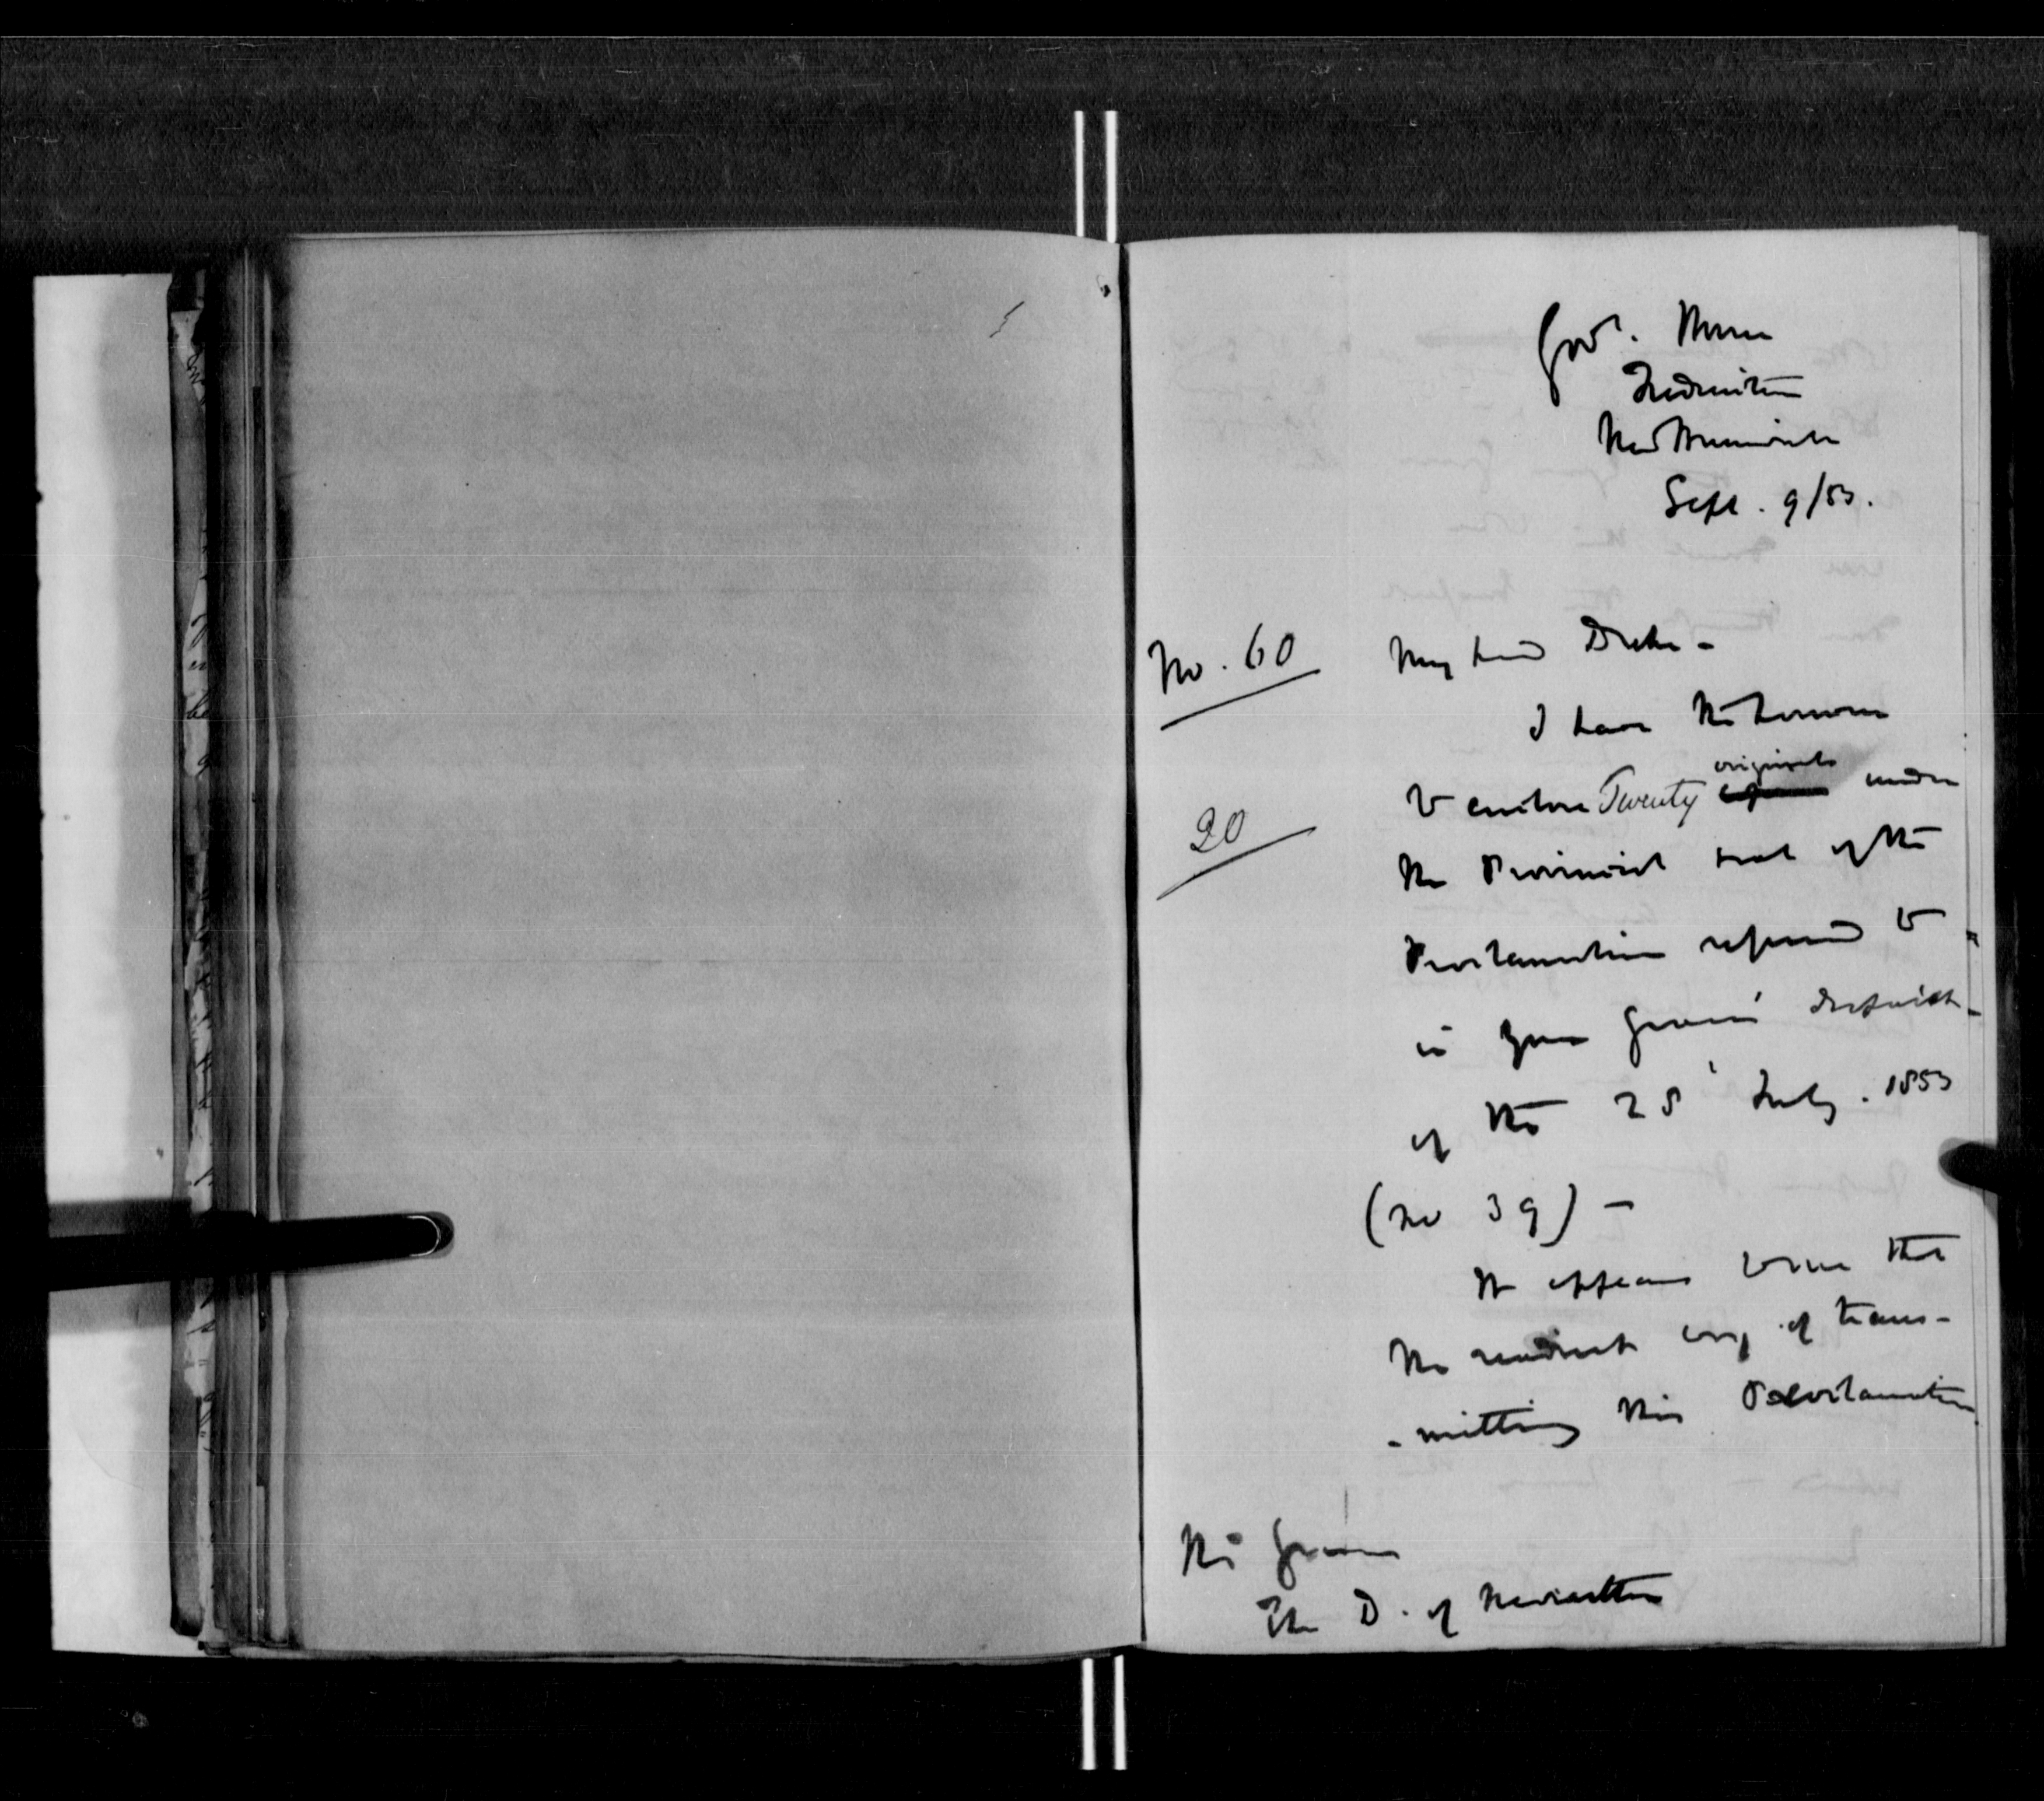 Govt. House
Fredericton
New Brunswick
Sept. 9/53.
No. 60
My Lord Duke -
I have the honour
20
to enclose Twenty originals under
the Provincial seal of the
Proclamation referred to
in your Grace's despatch
of the 28 July. 1853
(No 39) -
It appears to me that
the readiest way of trans-
- mitting this Proclamation
His Grace
The D. of Newcastle